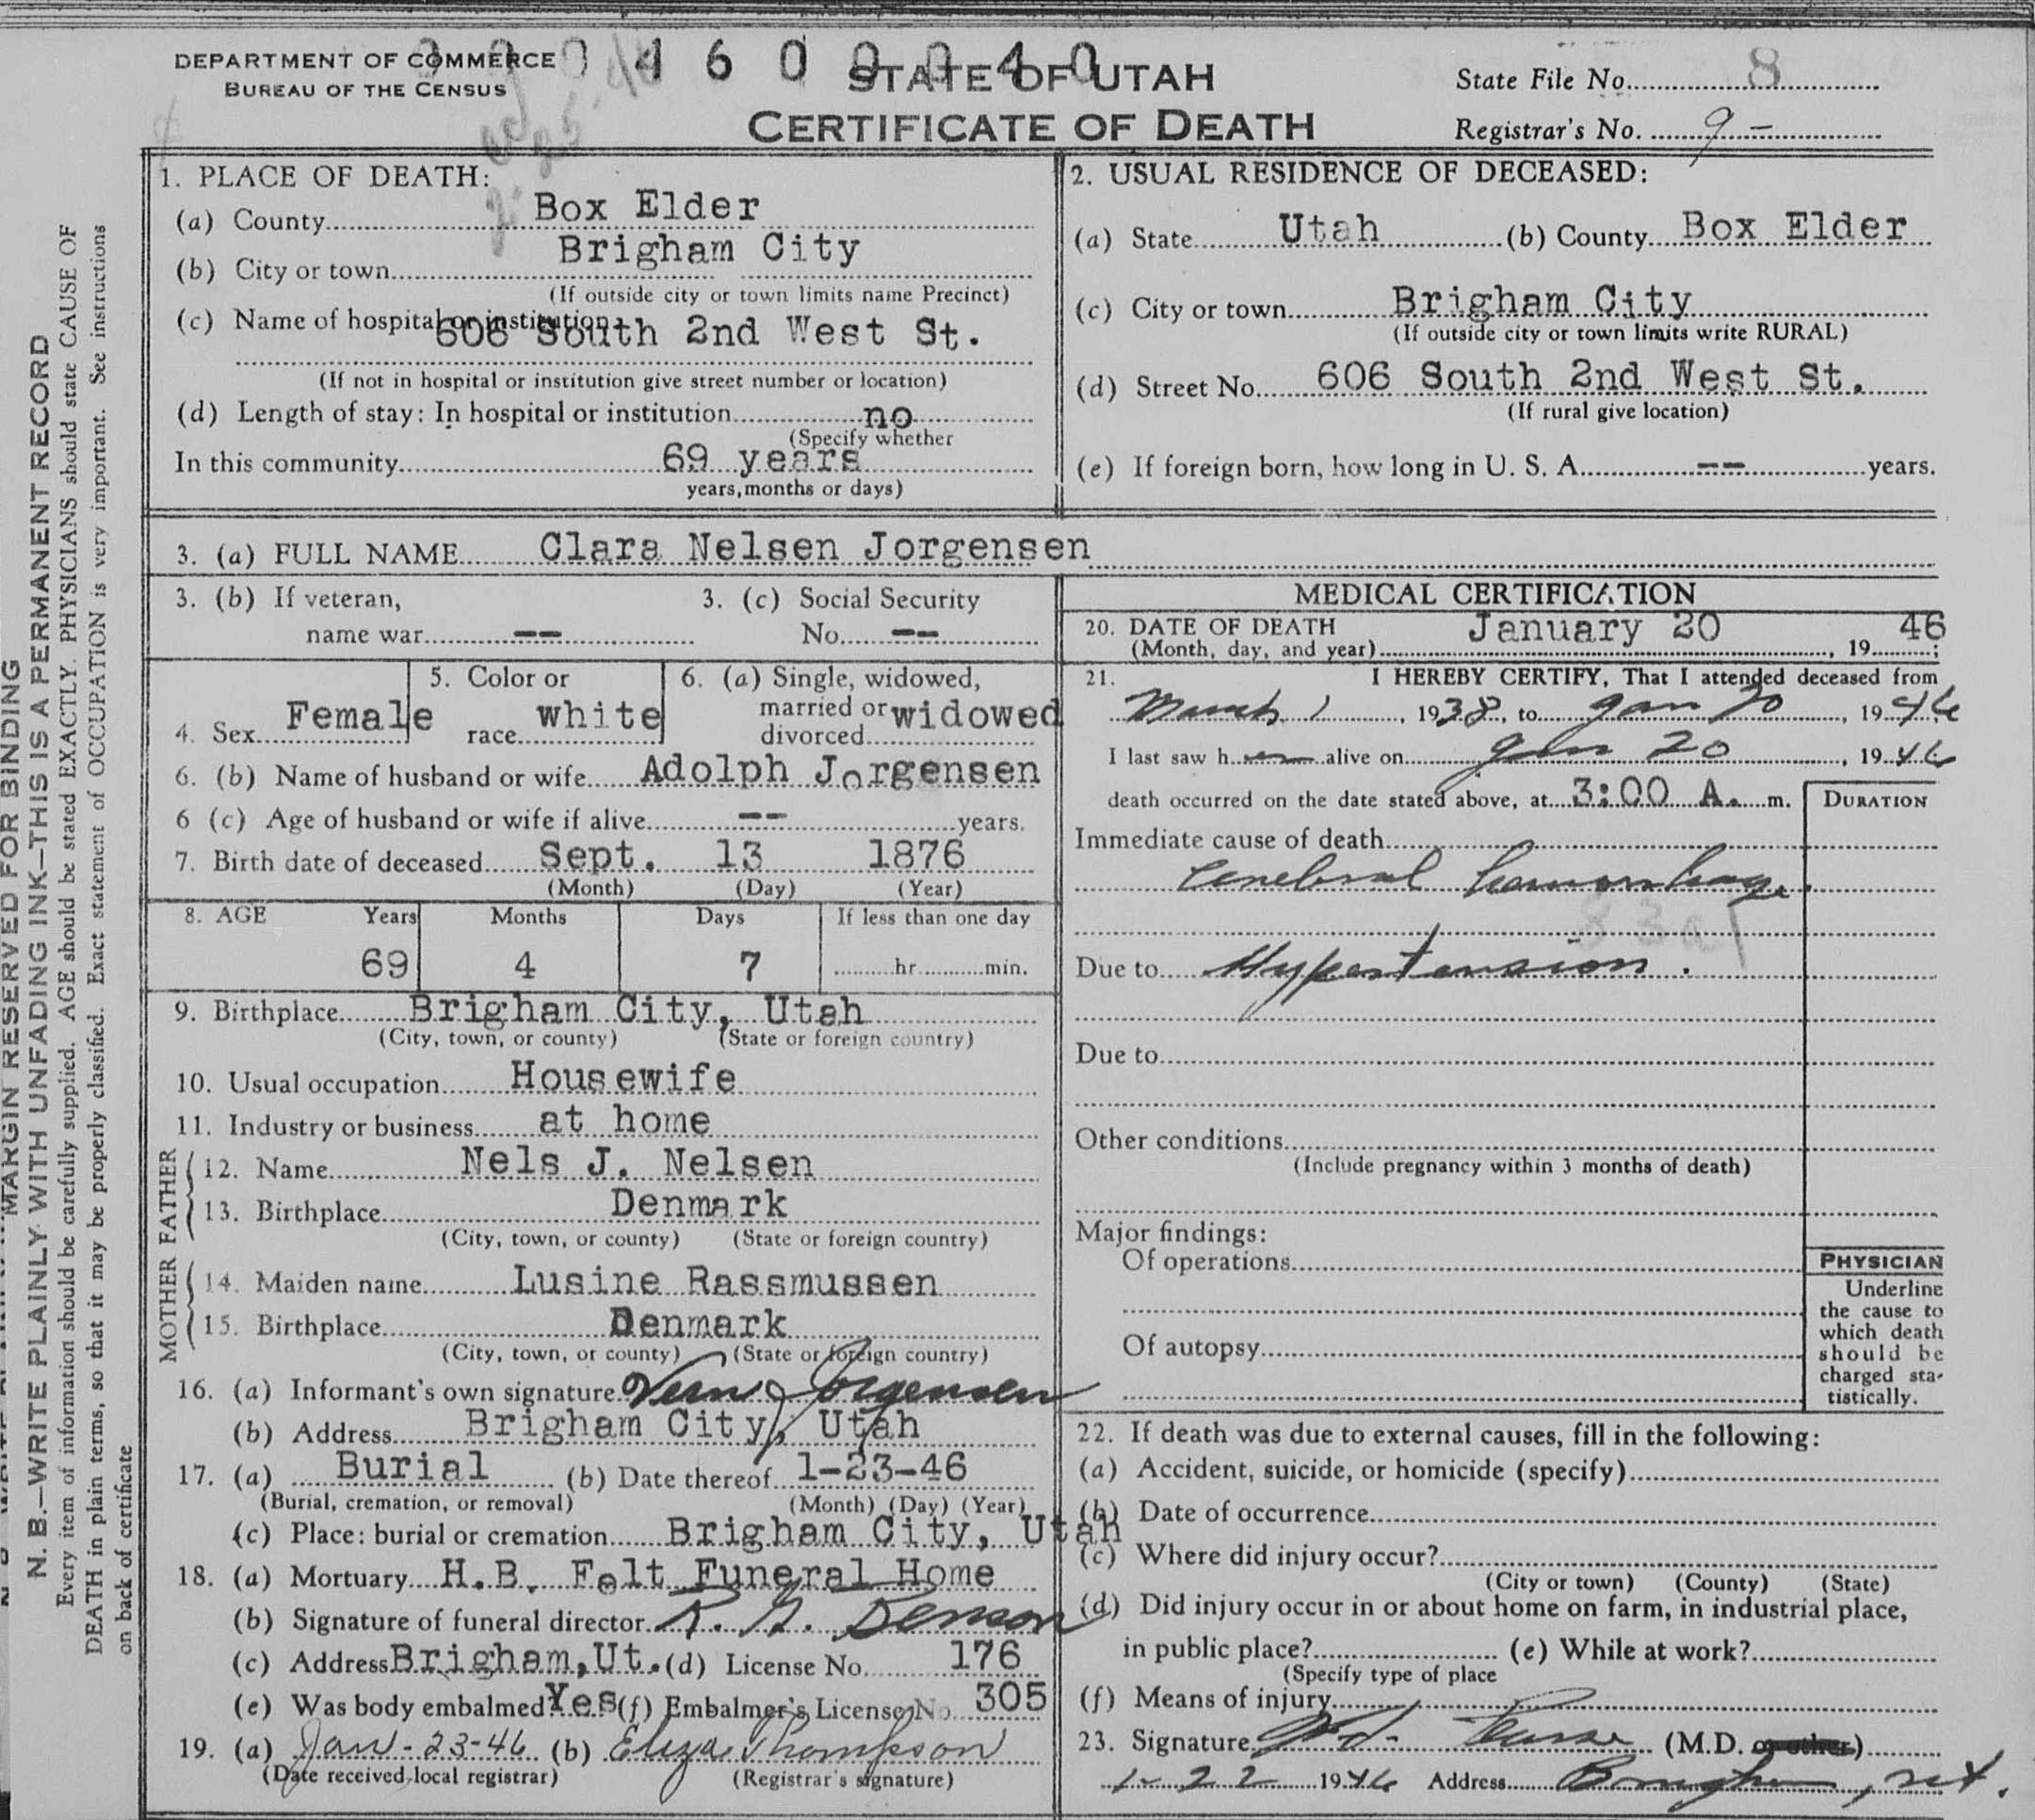 DEPARTMENT OF COMMERCE
BUREAU OF THE CENSUS
4600040
STATE OF UTAH
CERTIFICATE OF DEATH
State File No. 8
Registrar's No. 9 -
MARGIN RESERVED FOR BINDING
N. B.—WRITE PLAINLY WITH UNFADING INK—THIS IS A PERMANENT RECORD
Every item of information should be carefully supplied. AGE should be stated EXACTLY. PHYSICIANS should state CAUSE OF
DEATH in plain terms, so that it may be properly classified. Exact statement of OCCUPATION is very important. See instructions
on back of certificate
1. PLACE OF DEATH:
(a) County Box Elder
(b) City or town Brigham City
(If outside city or town limits name Precinct)
(c) Name of hospital or institution
606 South 2nd West St.
(If not in hospital or institution give street number or location)
(d) Length of stay: In hospital or institution no
(Specify whether
In this community 69 years
years, months or days)
2. USUAL RESIDENCE OF DECEASED:
(a) State Utah (b) County Box Elder
(c) City or town Brigham City
(If outside city or town limits write RURAL)
(d) Street No. 606 South 2nd West St.
(If rural give location)
(e) If foreign born, how long in U. S. A. -- years.
3. (a) FULL NAME Clara Nelsen Jorgensen
3. (b) If veteran,
name war --
3. (c) Social Security
No. --
4. Sex Female
5. Color or
race white
6. (a) Single, widowed,
married or
divorced widowed
6. (b) Name of husband or wife Adolph Jorgensen
6 (c) Age of husband or wife if alive -- years.
7. Birth date of deceased Sept. 13 1876
(Month) (Day) (Year)
8. AGE Years Months Days If less than one day
69 4 7 hr. min.
9. Birthplace Brigham City, Utah
(City, town, or county) (State or foreign country)
10. Usual occupation Housewife
11. Industry or business at home
FATHER
12. Name Nels J. Nelsen
13. Birthplace Denmark
(City, town, or county) (State or foreign country)
MOTHER
14. Maiden name Lusine Rassmussen
15. Birthplace Denmark
(City, town, or county) (State or foreign country)
16. (a) Informant's own signature Vern Jorgensen
(b) Address Brigham City, Utah
17. (a) Burial (b) Date thereof 1-23-46
(Burial, cremation, or removal) (Month) (Day) (Year)
(c) Place: burial or cremation Brigham City, Utah
18. (a) Mortuary H.B. Felt Funeral Home
(b) Signature of funeral director Benson
(c) Address Brigham, Ut. (d) License No. 176
(e) Was body embalmed? Yes (f) Embalmer's License No. 305
19. (a) Jan-23-46 (b) Eliza Thompson
(Date received local registrar) (Registrar's signature)
MEDICAL CERTIFICATION
20. DATE OF DEATH
(Month, day, and year) January 20, 1946;
21. I HEREBY CERTIFY, That I attended deceased from
March 1, 1938, to Jan 20, 1946
I last saw her alive on Jan 20, 1946
death occurred on the date stated above, at 3:00 A. m.
DURATION
Immediate cause of death
Cerebral hemorrhage
83a1
Due to Hypertension.
Due to
Other conditions
(Include pregnancy within 3 months of death)
Major findings:
Of operations
Of autopsy
PHYSICIAN
Underline
the cause to
which death
should be
charged sta-
tistically.
22. If death was due to external causes, fill in the following:
(a) Accident, suicide, or homicide (specify)
(b) Date of occurrence
(c) Where did injury occur?
(City or town) (County) (State)
(d) Did injury occur in or about home on farm, in industrial place,
in public place? (e) While at work?
(Specify type of place
(f) Means of injury
23. Signature (M.D. or other)
1-22 1946 Address Brigham, Ut.